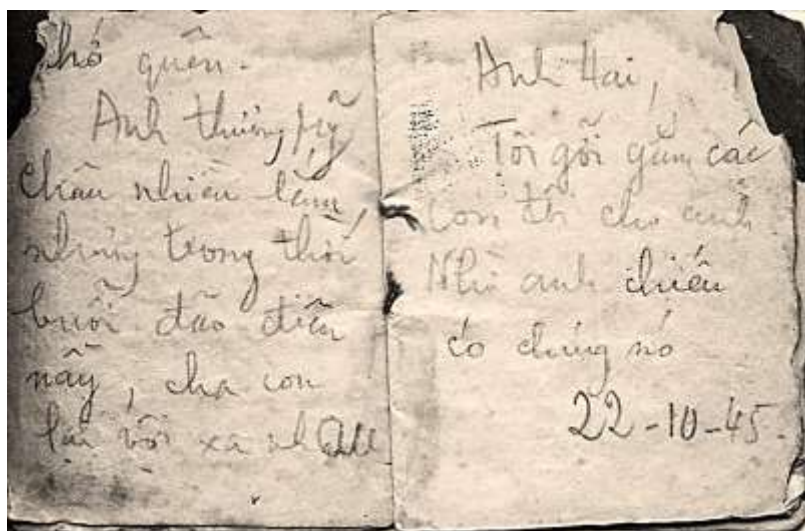 chớ quên.
Anh thương Mỹ
Châu nhiều lắm,
nhưng trong thời
buổi đão điên
nầy, cha con
lại vội xa nhau
Anh Hai,
Tôi gởi gấm các
con tôi cho anh.
Nhờ anh chiếu
cố chúng nó
22-10-45.